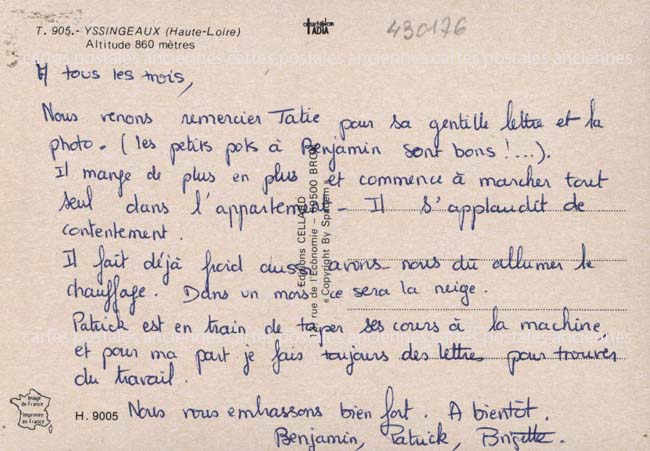 T. 905.- YSSINGEAUX (Haute-Loire)
Altitude 860 mètres
430176
A tous les trois,
Nous venons remercier Tatie pour sa gentille lettre et la
photo. (les petits pots à Benjamin sont bons !...).
Il mange de plus en plus et commence à marcher tout
seul dans l'appartement - Il s'applaudit de
contentement.
Il fait déjà froid aussi avons nous du allumer le
chauffage. Dans un mois ce sera la neige.
Patrick est en train de taper ses cours à la machine,
et pour ma part je fais toujours des lettres pour trouver
du travail.
Nous vous embrassons bien fort. A bientôt.
Benjamin, Patrick, Brigitte.
Editions CELLARD
rue de l'Economie - 69500 BRON
« Copyright By
Image
de France
Imprimée
en France
H. 9005
cartes postales anciennes